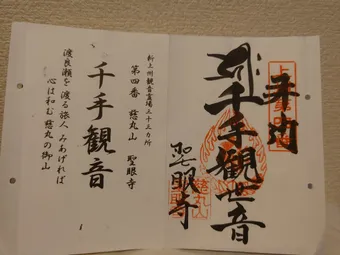 新上州観音霊場三十三カ所
第四番 慈丸山 聖眼寺
千手観音
渡良瀬を 渡る旅人 みあげれば
心は和む 慈丸の御山
奉拝
千手観世音
聖眼寺